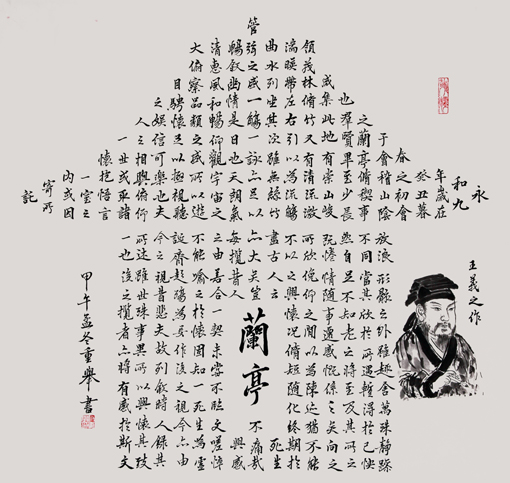 永
和九
年歲在
癸丑暮
春之初會
于會稽山陰
之蘭亭脩稧事
也群賢畢至少長
咸集此地有崇山峻
領茂林脩竹又有清流激
湍暎帶左右引以為流觴
曲水列坐其次雖無絲竹
管弦之盛一觴一詠亦足以
暢敘幽情是日也天朗氣
清惠風和暢仰觀宇宙之
大俯察品類之盛所以遊
目騁懷足以極視聽
之娛信可樂也夫
人之相與俯仰
一世或取諸
懷抱悟言
一室之
內或因
寄所
託
放浪形骸之外雖趣舍萬殊靜躁
不同當其欣於所遇暫得於己快
然自足不知老之將至及其所之
既惓情隨事遷感慨係之矣向之
所欣俛仰之間以為陳迹猶不能
不以之興懷況脩短隨化終期於
盡古人云
死生
亦大矣豈
不痛哉
每攬昔人
興感
之由若合一契未嘗不臨文嗟悼
不能喻之於懷固知一死生為虛
誕齊彭殤為妄作後之視今亦由
今之視昔悲夫故列敘時人錄其
所述雖世殊事異所以興懷其致
一也後之攬者亦將有感於斯文
蘭亭
王羲之作
甲午孟冬重舉書